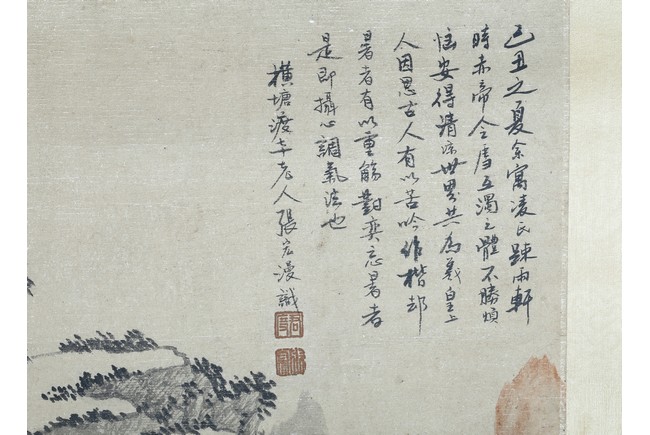 己丑之夏余寓凌氏疎雨軒
時赤帝令虐五濁之體不勝煩
惱安得清凉世界共為羲皇上
人因思古人有以苦吟作楷却
暑者有以重觴對奕忘暑者
是即攝心調氣法也
橫塘渡老人張宏漫識